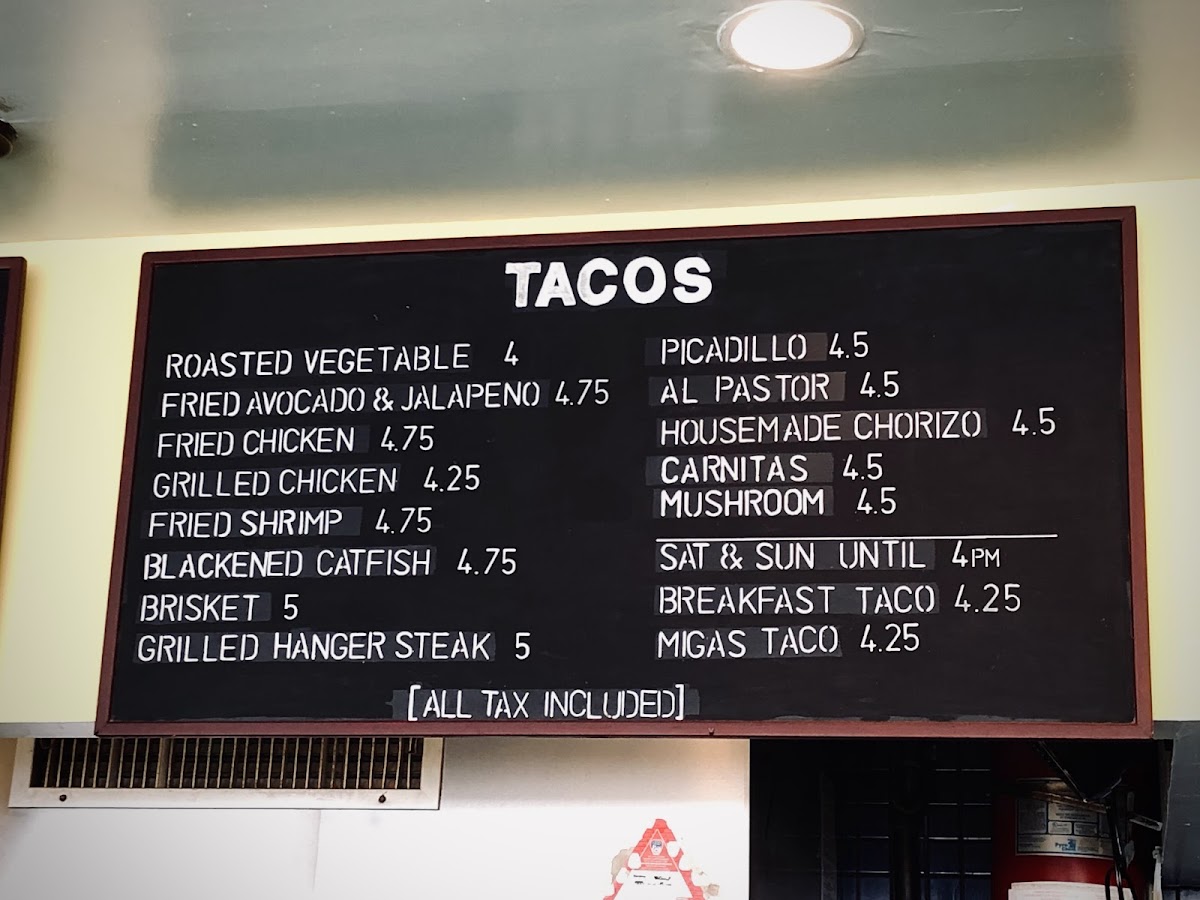 TACOS
ROASTED VEGETABLE 4
FRIED AVOCADO & JALAPENO 4.75
FRIED CHICKEN 4.75
GRILLED CHICKEN 4.25
FRIED SHRIMP 4.75
BLACKENED CATFISH 4.75
BRISKET 5
GRILLED HANGER STEAK 5
PICADILLO 4.5
AL PASTOR 4.5
HOUSEMADE CHORIZO 4.5
CARNITAS 4.5
MUSHROOM 4.5
SAT & SUN UNTIL 4PM
BREAKFAST TACO 4.25
MIGAS TACO 4.25
[ALL TAX INCLUDED]